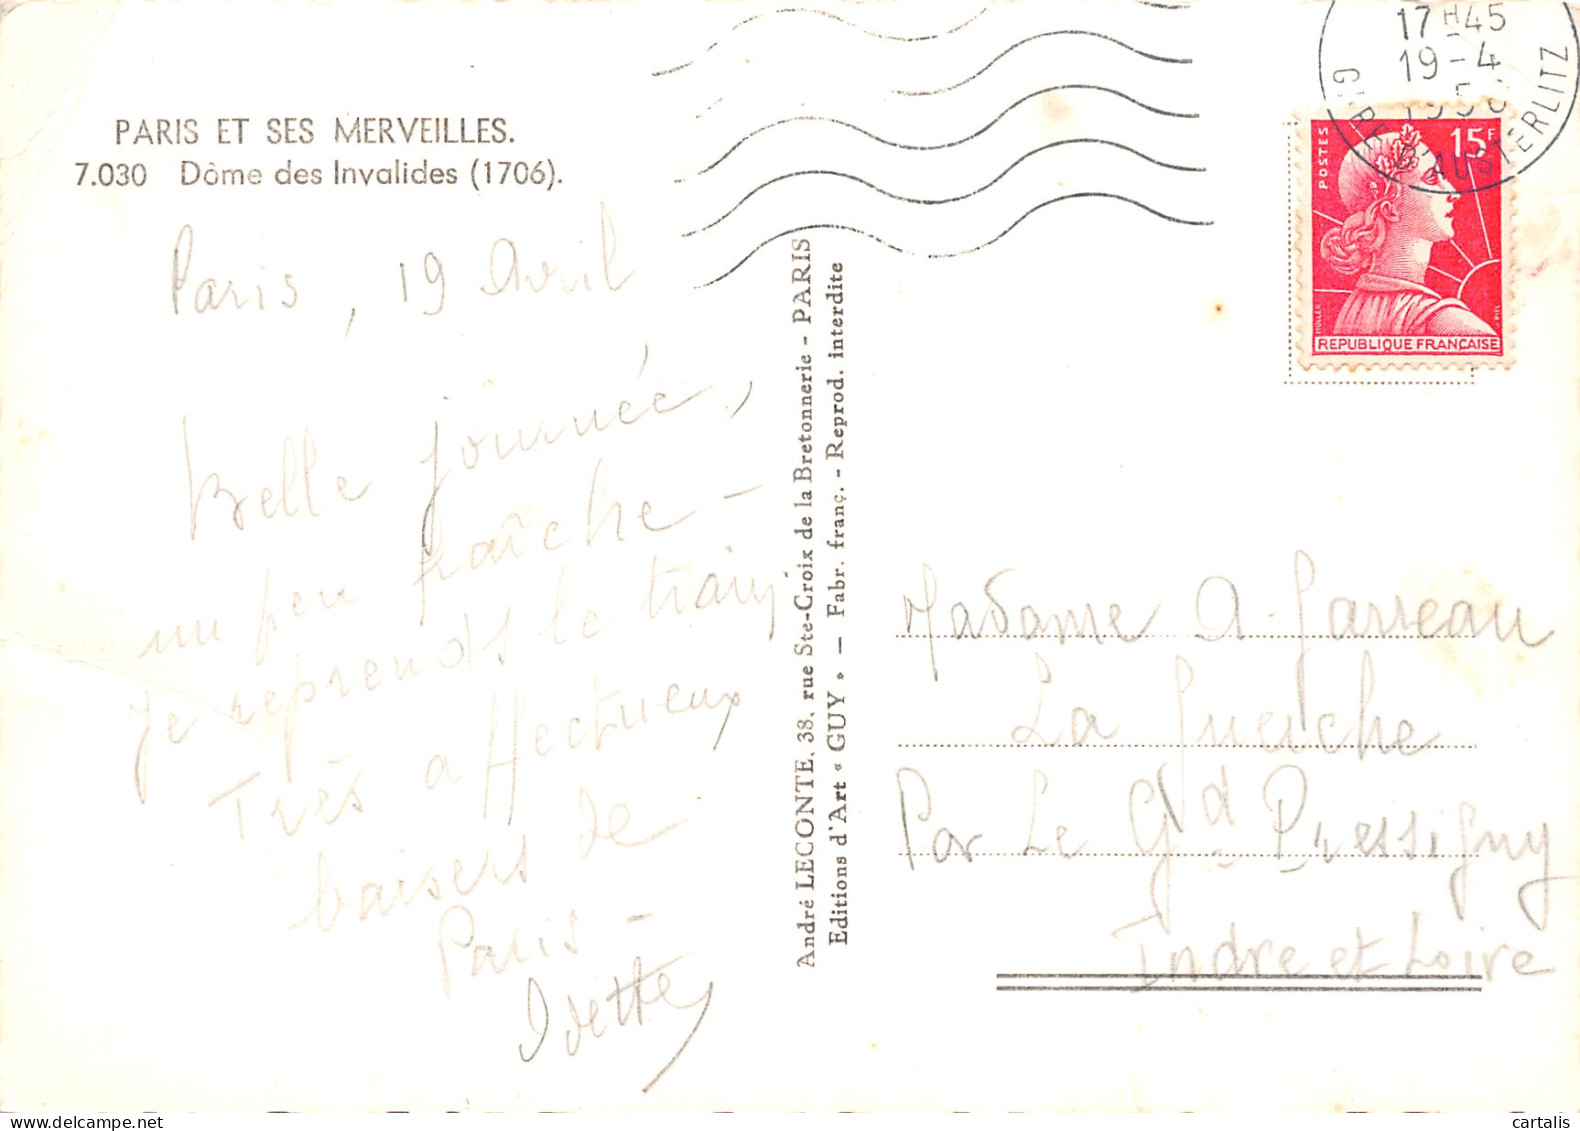 PARIS ET SES MERVEILLES.
7.030 Dôme des Invalides (1706).
Paris, 19 Avril
Belle journée,
un peu fraîche -
Je reprends le train
Très affectueux
baisers de
Paris -
Odette
André LECONTE, 38, rue Ste-Croix de la Bretonnerie - PARIS
Editions d'Art « GUY » — Fabr. franç. - Reprod. interdite
17H45
19-4
GARE D'AUSTERLITZ
POSTES
15F
MULLER
J. PIEL
REPUBLIQUE FRANÇAISE
Madame A. Garreau
La Guerche
Par Le Gd Pressigny
Indre et Loire
cartalis